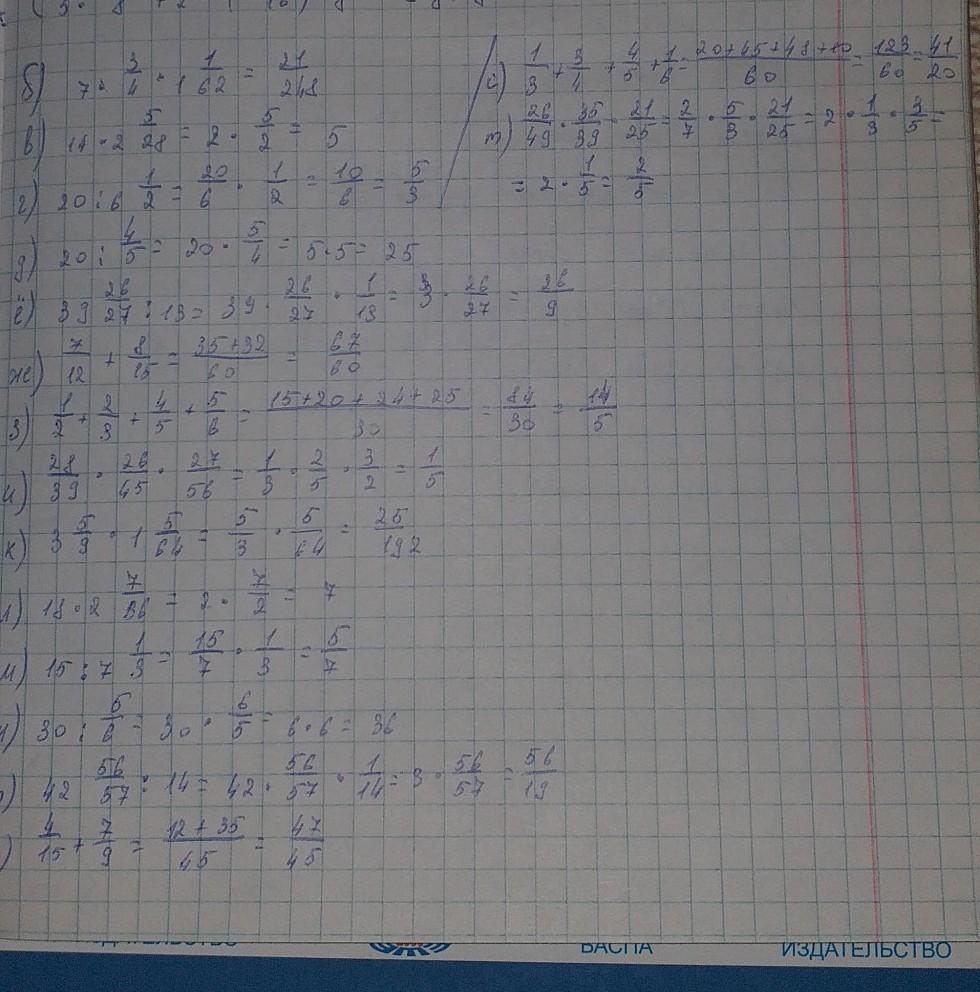 б) 7 · 3/4 · 1 1/62 = 21/248
в) 14 · 2 5/28 = 2 · 5/2 = 5
г) 20 : 6 1/2 = 20/6 · 1/2 = 10/6 = 5/3
д) 20 : 4/5 = 20 · 5/4 = 5·5 = 25
ё) 39 26/27 : 13 = 39 · 26/27 · 1/13 = 3 · 26/27 = 26/9
ж) 7/12 + 8/15 = 35+32/60 = 67/60
з) 1/2 + 2/3 + 4/5 + 5/6 = 15+20+24+25/30 = 84/30 = 14/5
и) 28/39 · 26/45 · 27/56 = 1/3 · 2/5 · 3/2 = 1/5
к) 3 5/9 · 1 5/64 = 5/3 · 5/64 = 25/192
л) 18 · 2 7/36 = 2 · 7/2 = 7
м) 15 : 7 1/3 = 15/7 · 1/3 = 5/7
30 : 5/6 = 30 · 6/5 = 6·6 = 36
42 56/57 : 14 = 42 · 56/57 · 1/14 = 3 · 56/57 = 56/19
4/15 + 7/9 = 12+35/45 = 47/45
с) 1/3 + 3/4 + 4/5 + 1/6 = 20+45+48+10/60 = 123/60 = 41/20
т) 26/49 · 35/39 · 21/25 = 2/7 · 5/3 · 21/25 = 2 · 1/3 · 3/5 =
= 2 · 1/5 = 2/5
БАСПА ИЗДАТЕЛЬСТВО